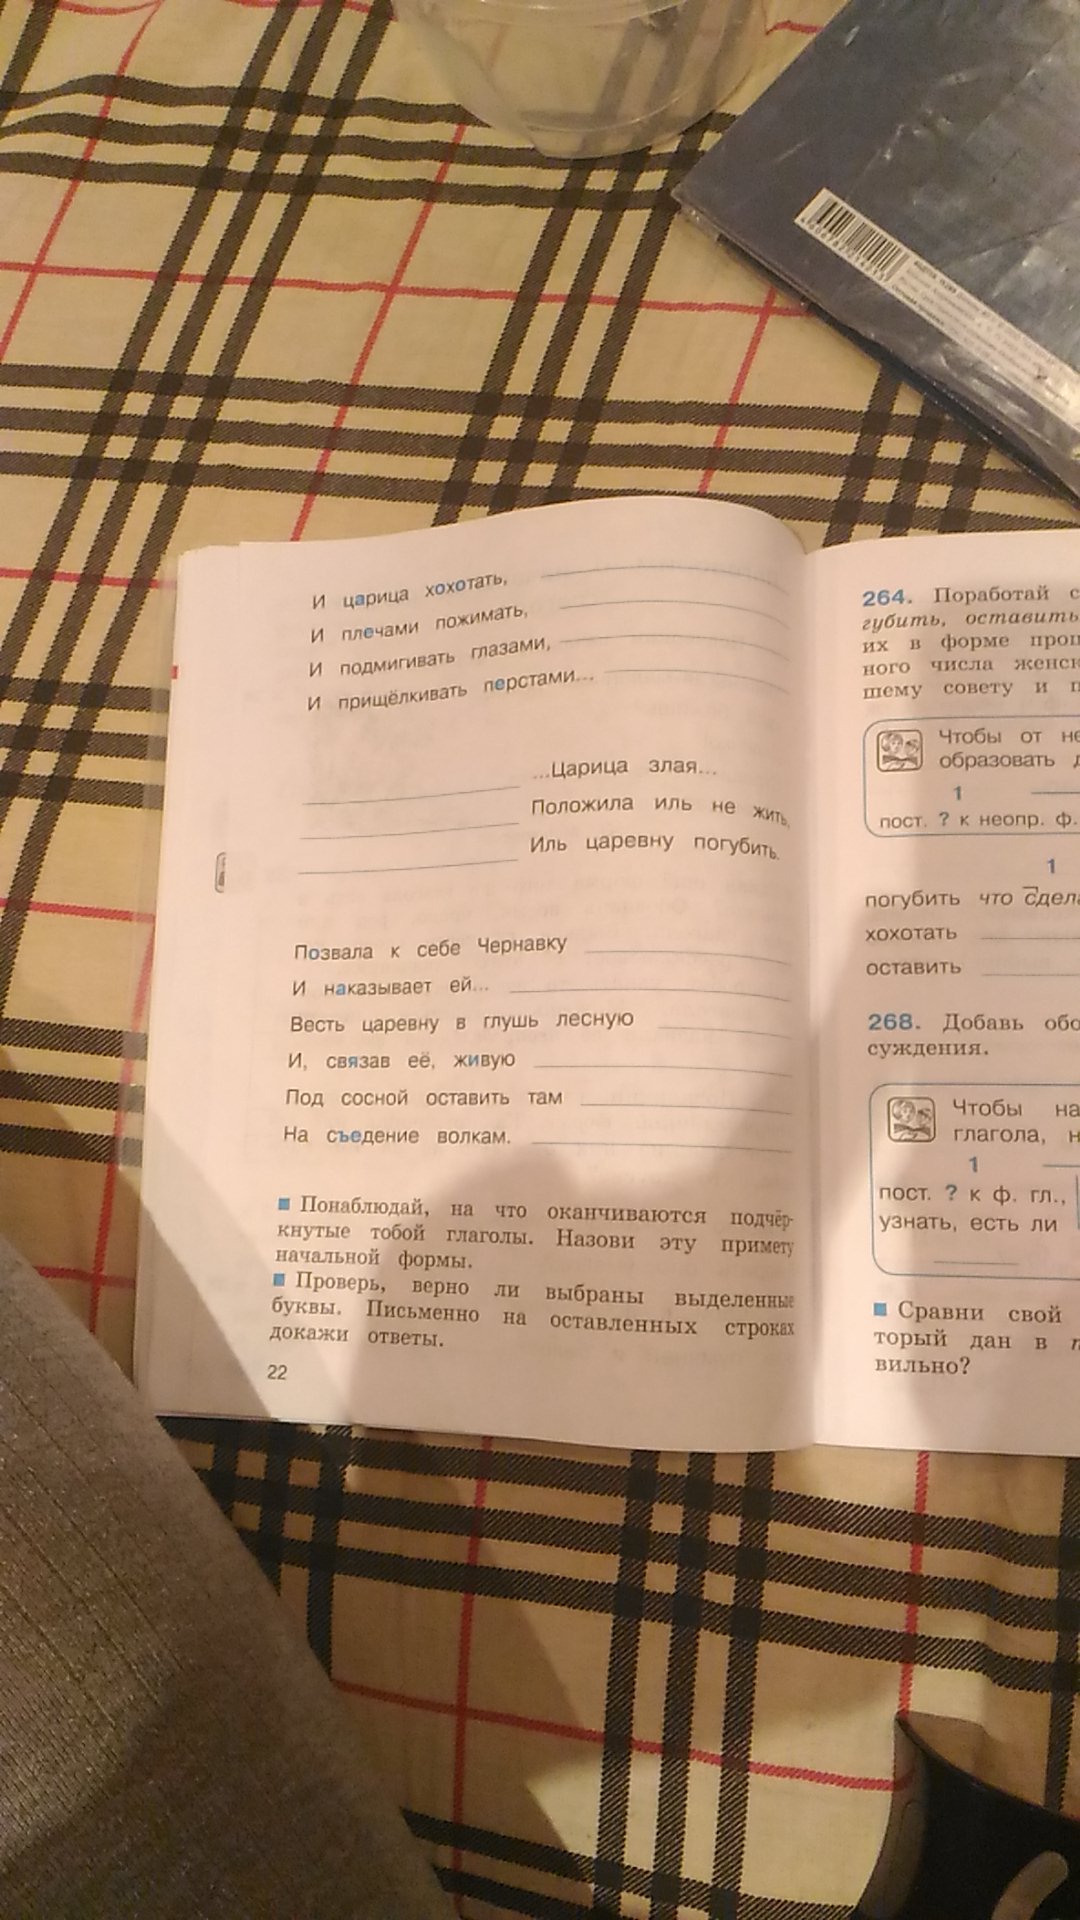 И царица хохотать,
И плечами пожимать,
И подмигивать глазами,
И прищёлкивать перстами...
...Царица злая...
Положила иль не жить,
Иль царевну погубить.
Позвала к себе Чернавку
И наказывает ей...
Весть царевну в глушь лесную
И, связав её, живую
Под сосной оставить там
На съедение волкам.
Понаблюдай, на что оканчиваются подчёр-
кнутые тобой глаголы. Назови эту примету
начальной формы.
Проверь, верно ли выбраны выделенные
буквы. Письменно на оставленных строках
докажи ответы.
22
264. Поработай с
губить, оставить
их в форме прош
ного числа женск
шему совету и п
Чтобы от не
образовать
1
пост. ? к неопр. ф.
1
погубить что сдела
хохотать
оставить
268. Добавь обо
суждения.
Чтобы на
глагола, н
1
пост. ? к ф. гл.,
узнать, есть ли
Сравни свой
торый дан в
вильно?